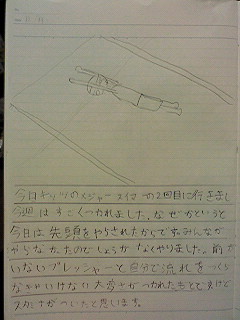 今日キッツのメジャース付 の2回目に行きまし
今週はすごくつかれました。なぜかというと
今日は先頭をやらされたからですみんなが
やらなかったのでしょうがなくやりました。前が
いないプレッシャーと自分で流れをつくら
なかいけない大変さがつかれたもとですけど
スカさがついたと思います。